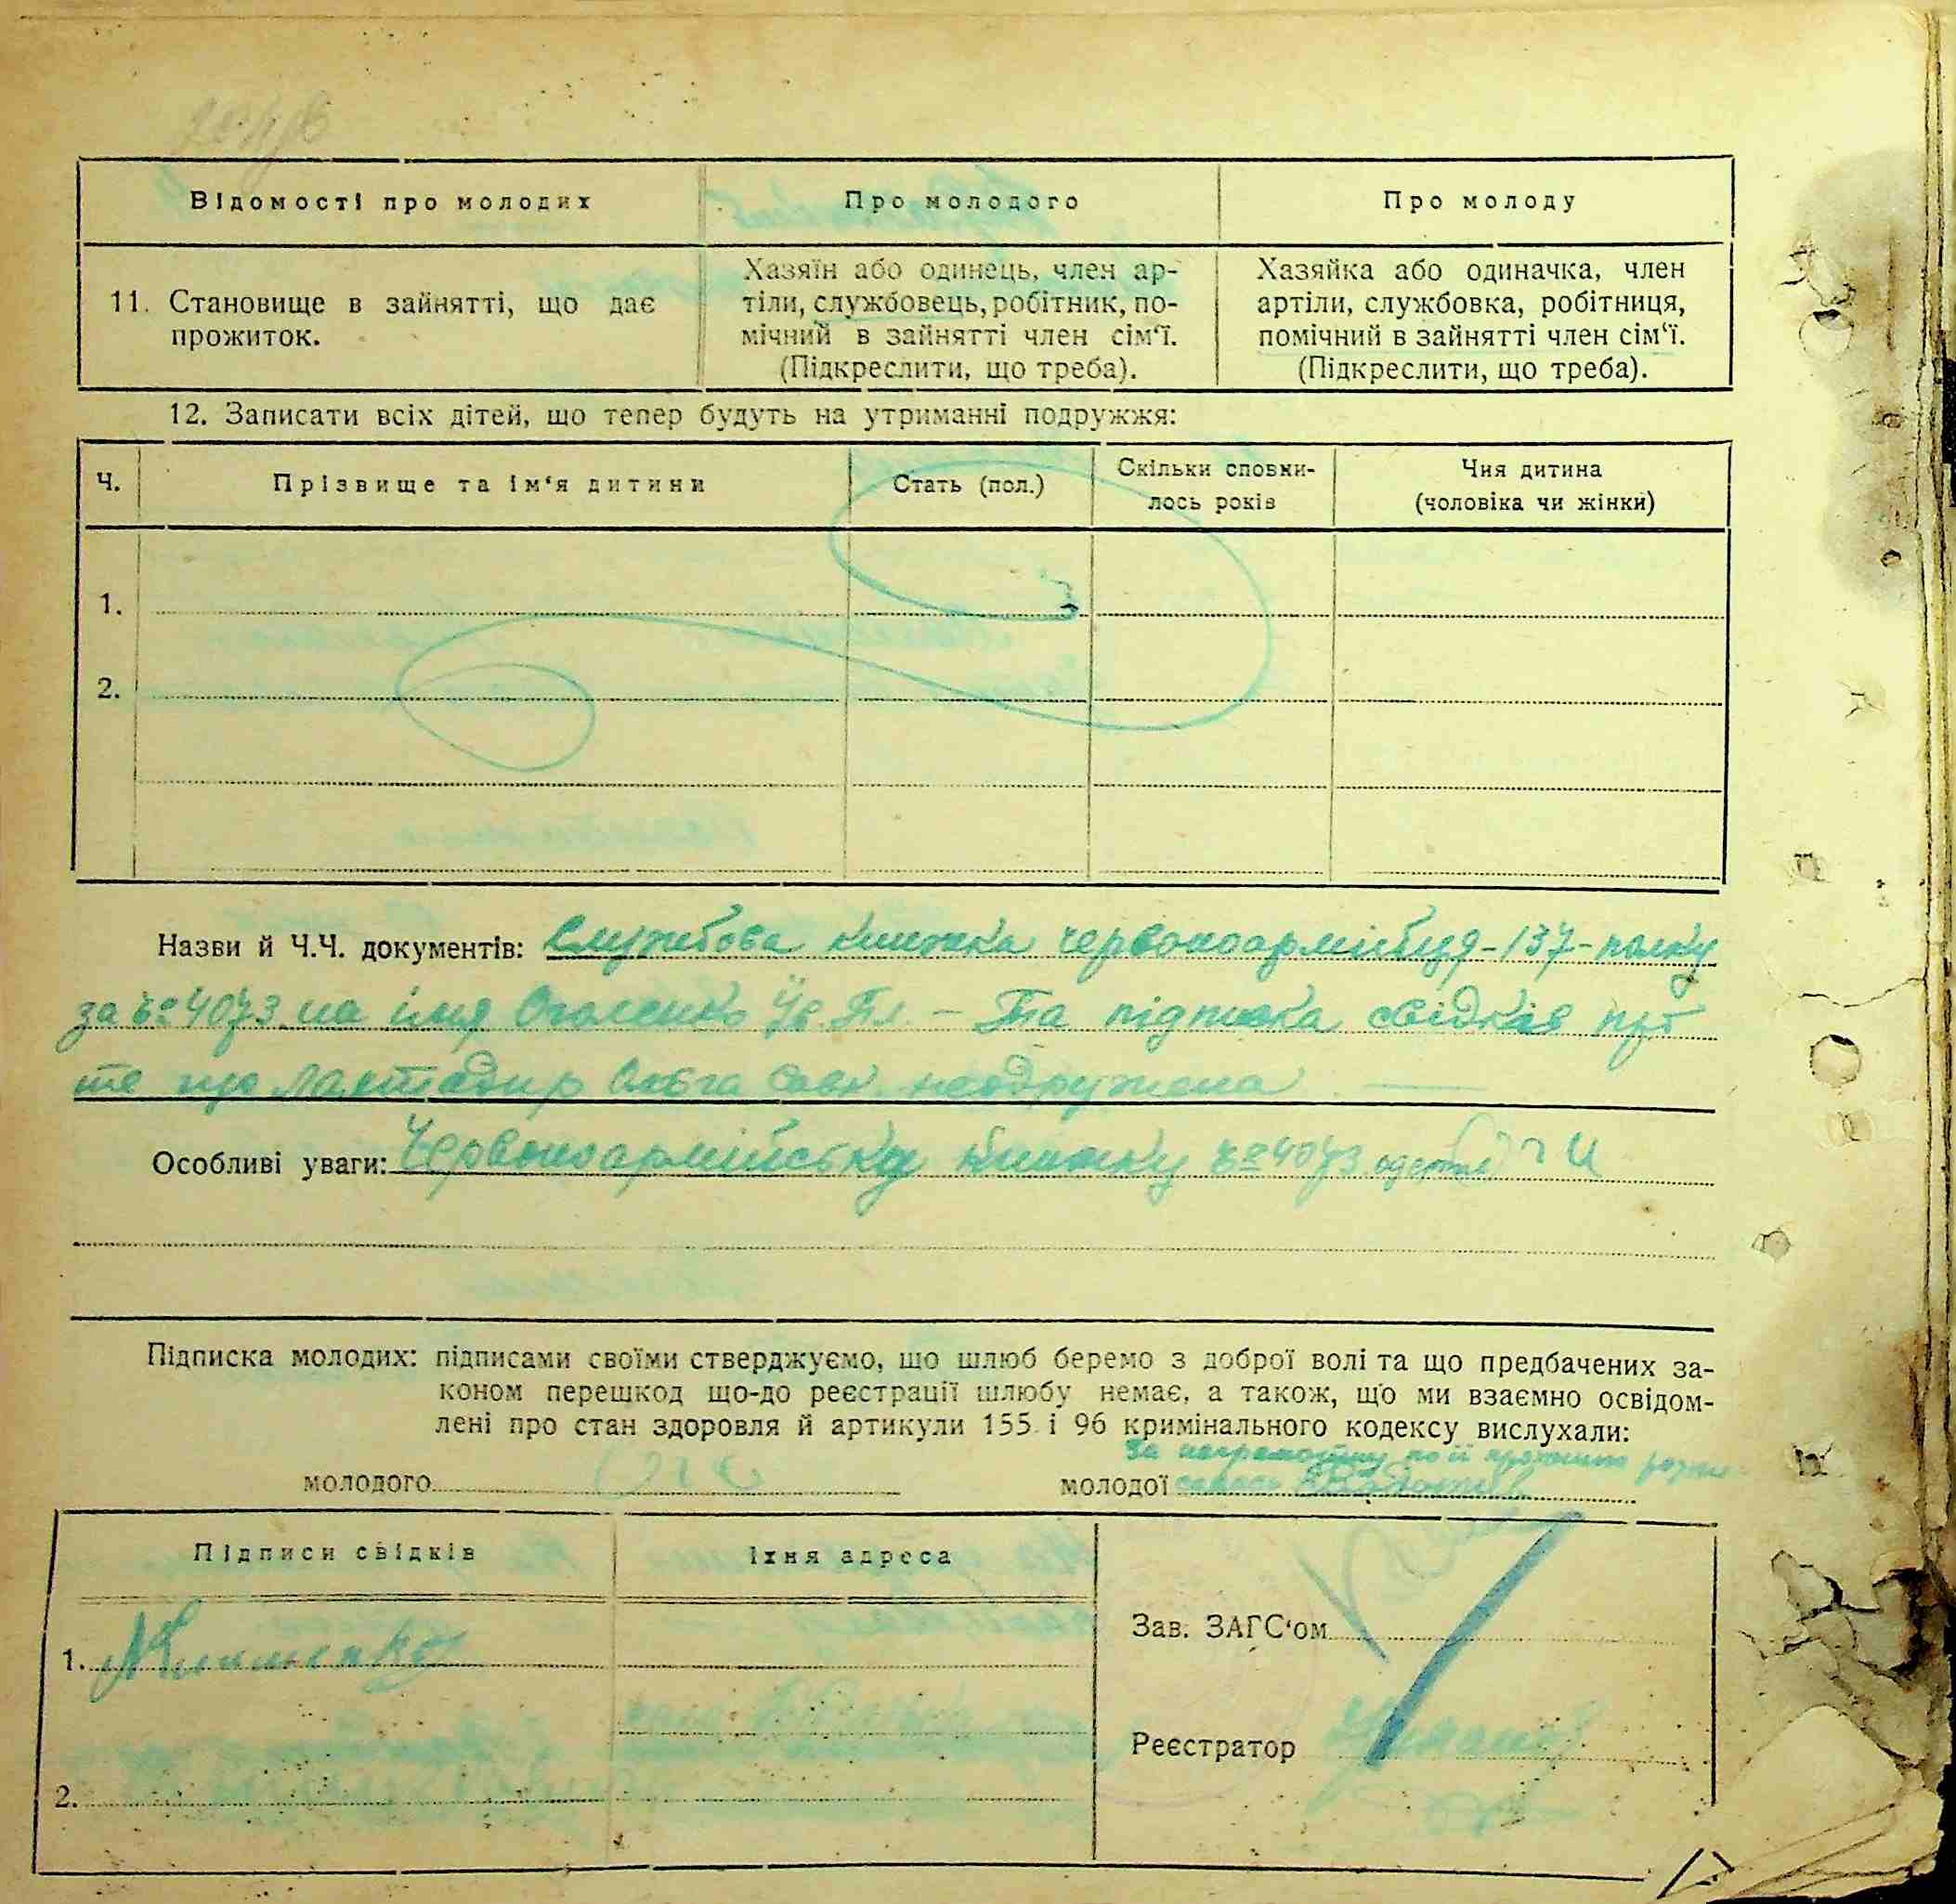 Відомості про молодих
Про молодого
Про молоду
11. Становище в зайнятті, що дає прожиток.
Хазяїн або одинець, член ар-
тіли, службовець, робітник, по-
мічний в зайнятті член сім'ї.
(Підкреслити, що треба).
Хазяйка або одиначка, член
артіли, службовка, робітниця,
помічний в зайнятті член сім'ї.
(Підкреслити, що треба).
12. Записати всіх дітей, що тепер будуть на утриманні подружжя:
Ч.
Прізвище та ім'я дитини
Стать (пол.)
Скільки сповни-
лось років
Чия дитина
(чоловіка чи жінки)
1.
2.
Назви й Ч.Ч. документів: Службова книжка червоноармійця-137-полку
за № 4073 на імя Та підписка свідків про
те що Ольга неодружена
Особливі уваги: Червоноармійську книжку № 4073
Підписка молодих: підписами своїми стверджуємо, що шлюб беремо з доброї волі та що предбачених за-
коном перешкод що-до реєстрації шлюбу немає, а також, що ми взаємно освідом-
лені про стан здоровля й артикули 155 і 96 кримінального кодексу вислухали:
За неграмотну по її проханню
молодого
молодої
Підписи свідків
їхня адреса
1.
2.
Зав. ЗАГС'ом
Реєстратор